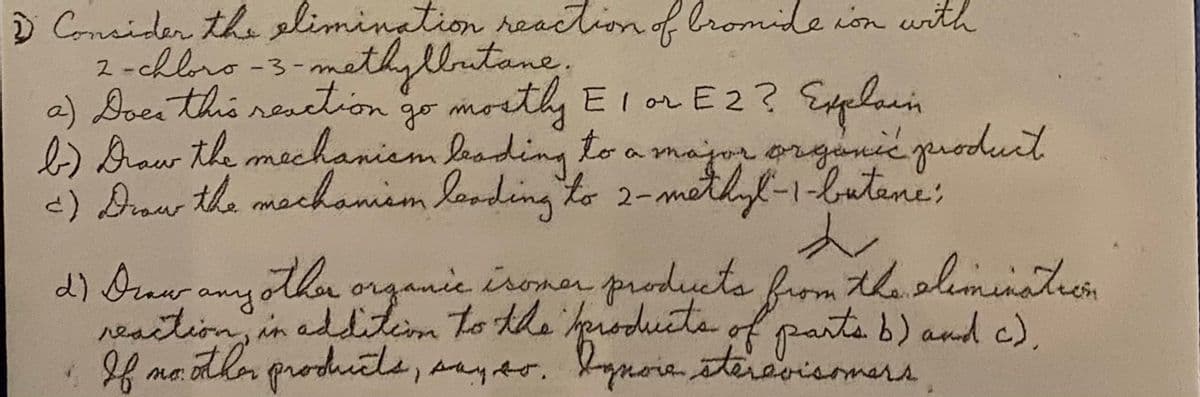 1) Consider the elimination reaction of bromide ion with
2-chloro-3-methylbutane.
a) Does this reaction go mostly E1 or E2? Explain
b) Draw the mechanism leading to a major organic product
c) Draw the mechanism leading to 2-methyl-1-butene:
d) Draw any other organic isomer products from the elimination
reaction, in addition to the products of parts b) and c).
If no other products, say so. Ignore stereoisomers